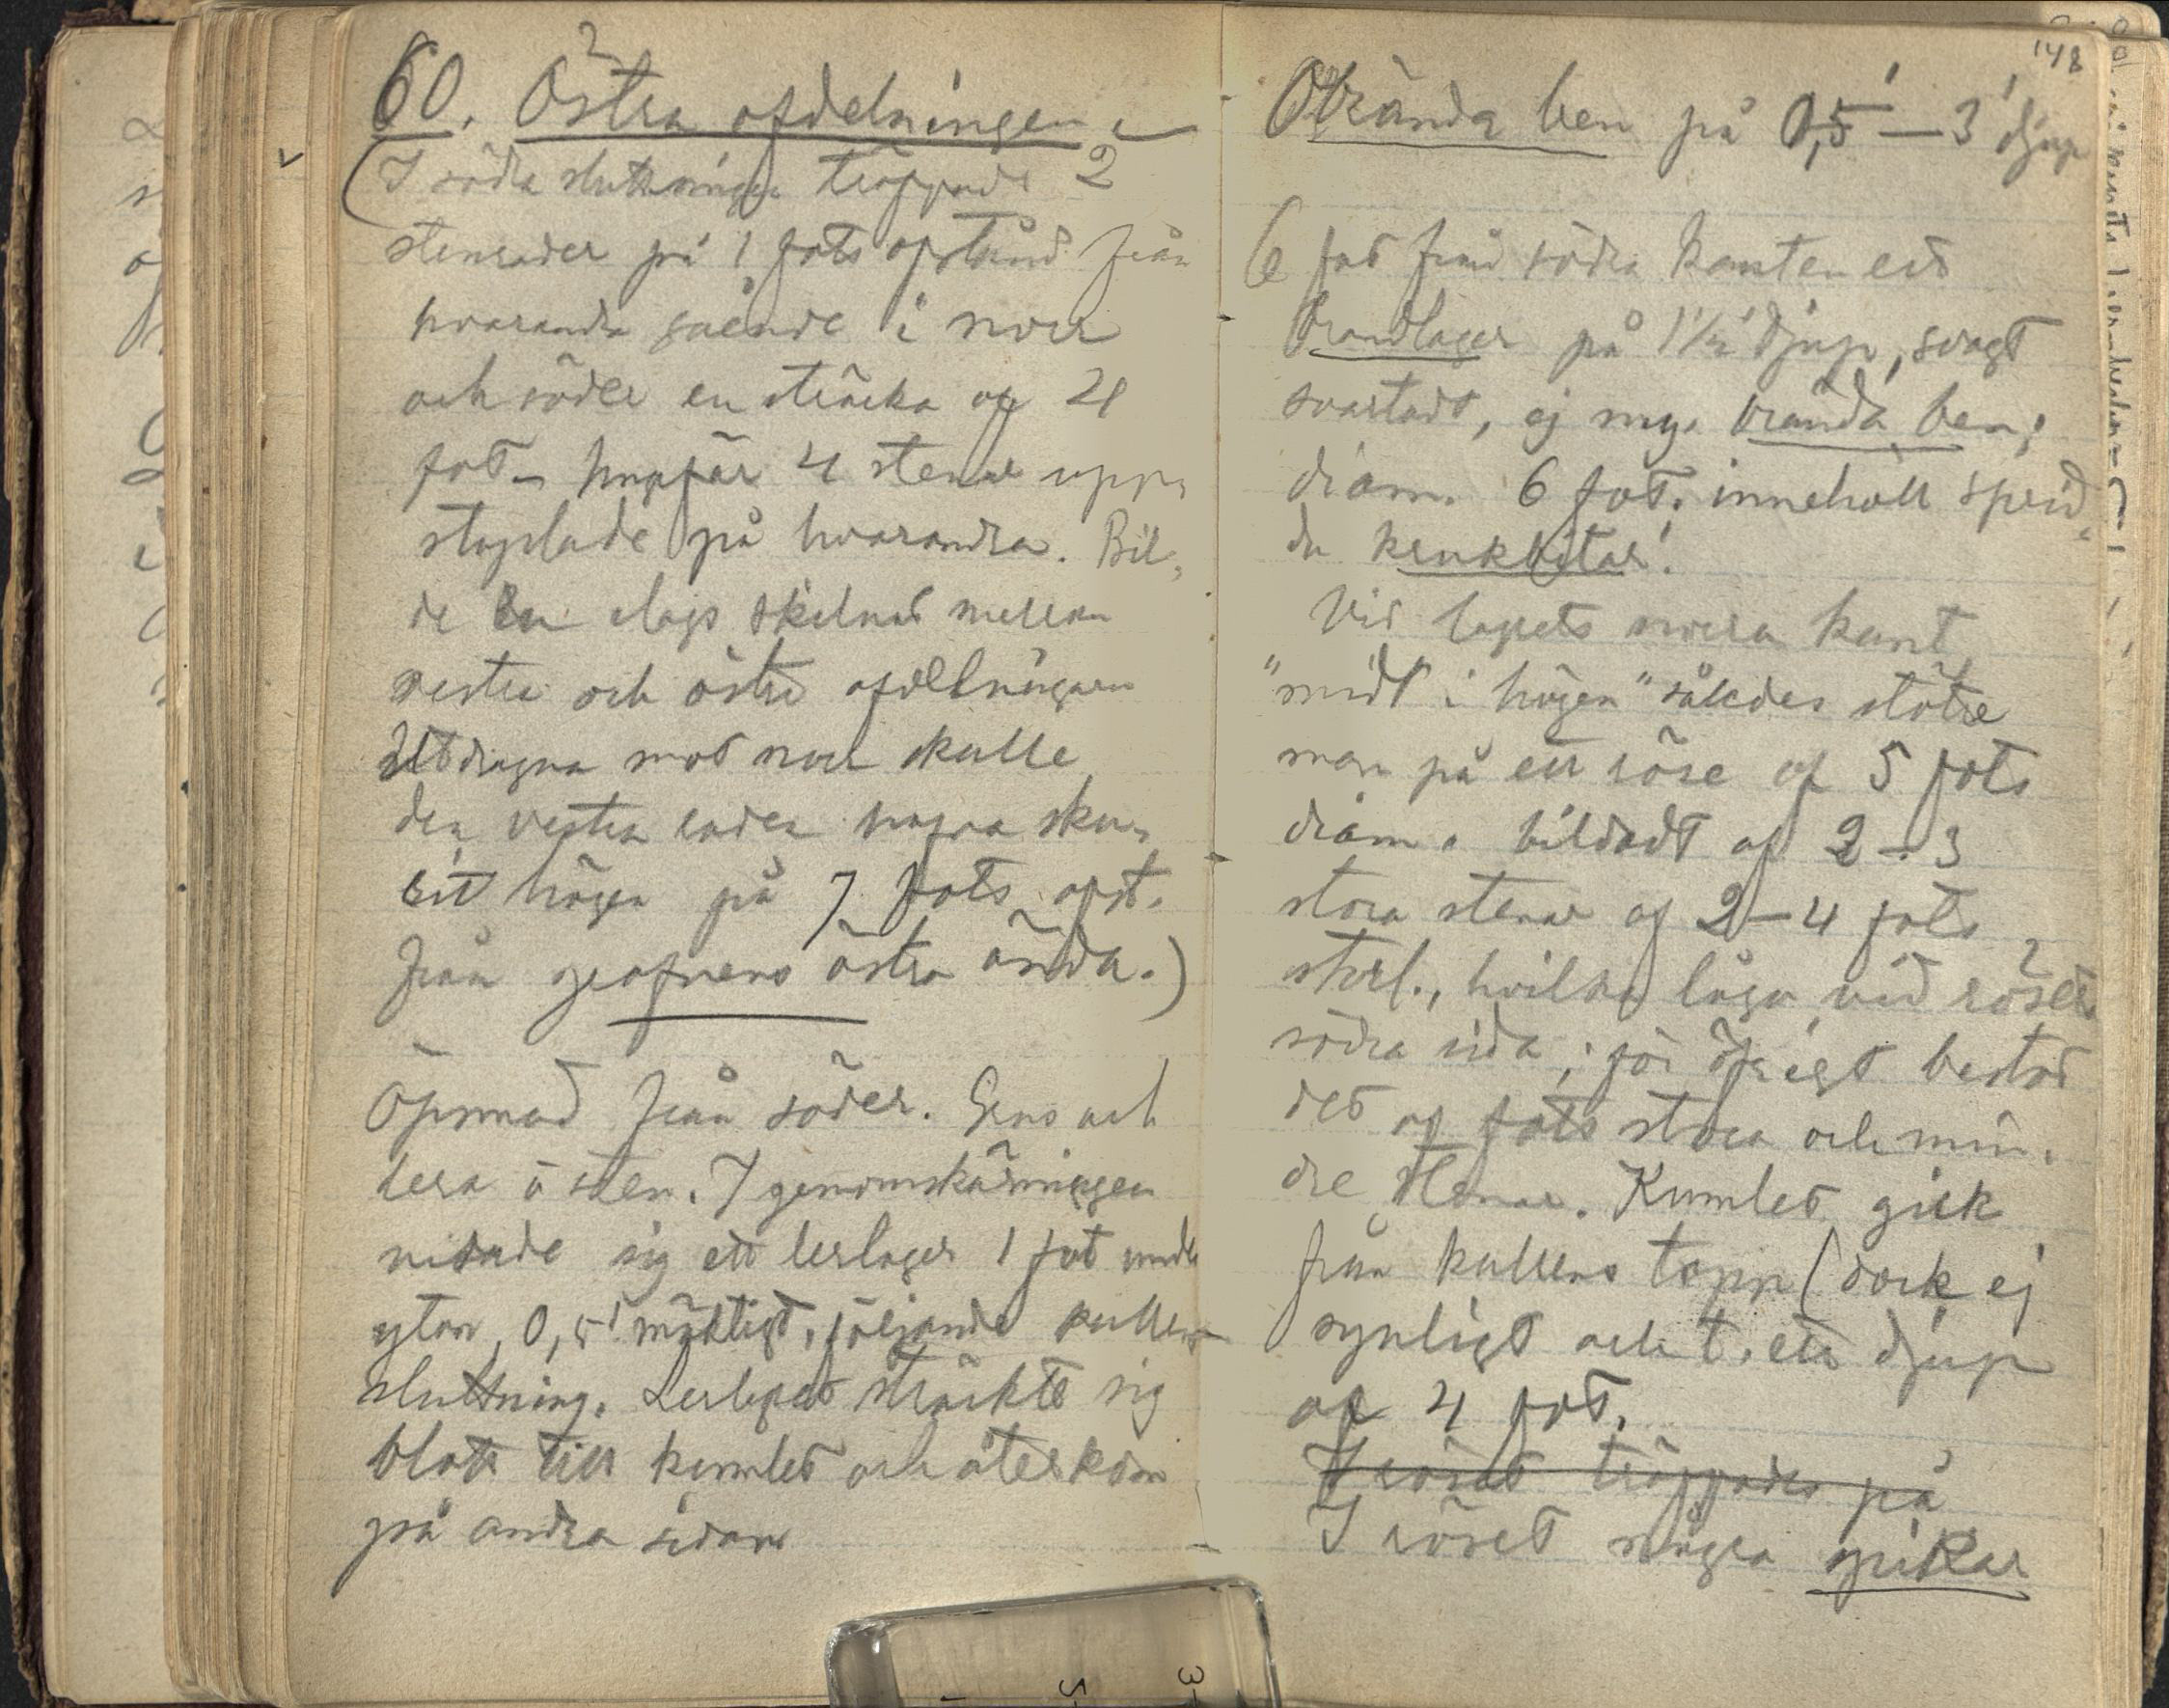 60. Östra afdelningen.
(I södra sluttningen träffades 2
stenrader på 1 fots afstånd från
hvarandra gående i norr
och söder en sträcka af 4
fot. Ungefär 4 stenar upp-
staplade på hvarandra. Bil-
de en slags skilnad mellan
vestra och östra afdelningarne
Utdragna mot norr skulle
den vestra raden hafva sku-
rit högen på 7 fots afst.
från grafvens östra ända.)
Öpnad från söder. Grus och
lera ö sten. I genomskärningen
visade sig ett lerlager 1 fot under
ytan, 0,5' mäktigt, följande kullens
sluttning. Lerlagret sträckte sig
blott till kumlet och återkom
på andra sidan
148
Obrända ben på 0,5'—3' djup
6 fot från södra kanten ett
brandlager på 1½' djup, svagt
svartadt, ej myc. brända ben;
diam. 6 fot; innehöll sprid-
da krukbitar!
Vid lagrets norra kant
"midt i högen" således stötte
man på ett röse af 5 fots
diam. bildadt af 2—3
stora stenar af 2—4 fots
storl., hvilka lågo vid rösets
södra sida; för öfrigt bestod
det af fots stora och min-
dre stenar. Kumlet gick
från kullens topp (dock ej
synligt och t. ett djup
af 4 fot.
I röset träffades på
I röset några spikar